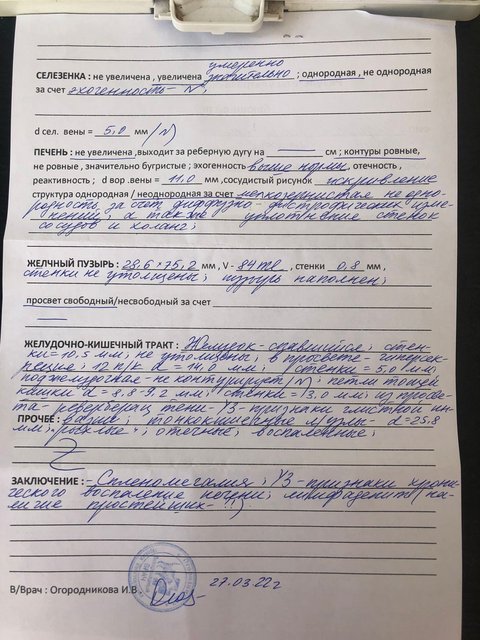 умеренно
СЕЛЕЗЕНКА : не увеличена , увеличена значительно ; однородная , не однородная
за счет эхогенность - N
d сел. вены = 5,0 мм /N/
ПЕЧЕНЬ : не увеличена ,выходит за реберную дугу на см ; контуры ровные,
не ровные , значительно бугристые ; эхогенность выше нормы, отечность ,
реактивность ; d вор .вены = 11,0 мм ,сосудистый рисунок искривление
структура однородная / неоднородная за счет мелкозернистая не одно-
родность за счет диффузно-дистрофических изме-
нений; а также уплотнение стенок
сосудов и холанг;
ЖЕЛЧНЫЙ ПУЗЫРЬ : 28,6 × 75,2 мм , V - 84 ml , стенки 0,8 мм ,
стенки не утолщены; пузырь наполнен;
просвет свободный/несвободный за счет
ЖЕЛУДОЧНО-КИШЕЧНЫЙ ТРАКТ : Желудок - спавшийся; стен-
ки = 10,5 мм; не утолщены; в просвете - гиперсек-
реция; 12 п/к d = 14,0 мм ; стенки = 5,0 мм
поджелудочная - не контурирует /N/; петли тощей
кишки d = 8,8-9,2 мм; стенки = 3,0 мм; из просве-
та - ревербирац тени - УЗ-признаки глистной ин-
ПРОЧЕЕ : вазии; тонкокишечные л/узлы - d = 25,8
мм, рыхлые ; отечные; воспаленные;
ЗАКЛЮЧЕНИЕ : - Спленомегалия; УЗ-признаки хрони-
ческого воспаление печени; лимфаденит (на-
личие простейших - !!)
В/Врач : Огородникова И.В.
27.03.22г